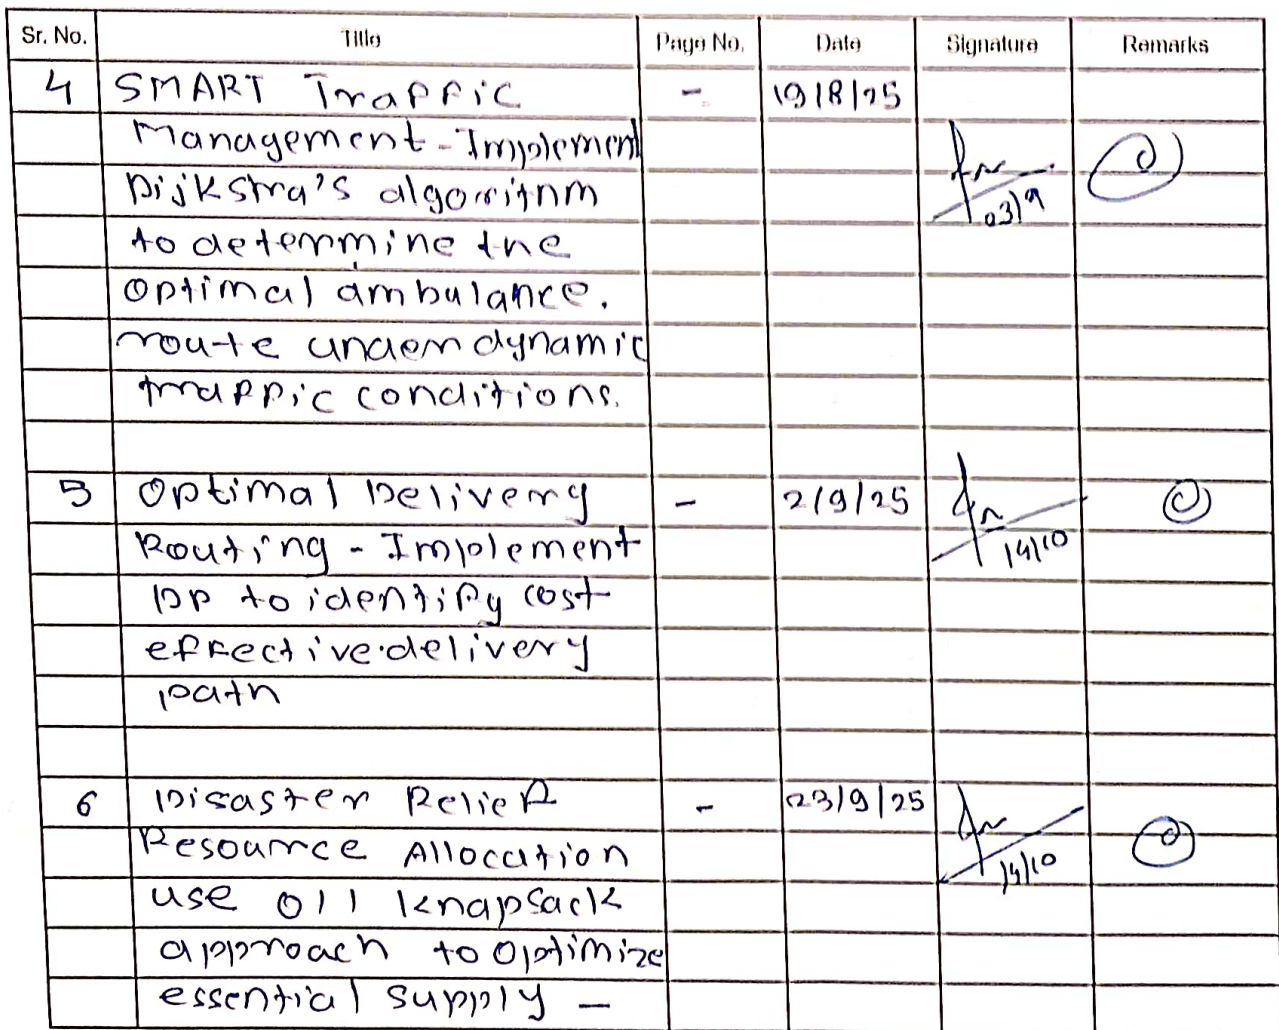 Sr. No. Title Page No. Date Signature Remarks
4 SMART Traffic - 19/8/25
Management - Implement
Dijkstra's algorithm 03/9
to determine the
optimal ambulance.
route under dynamic
traffic conditions.
5 Optimal Delivery - 2/9/25
Routing - Implement 14/10
DP to identify cost
effective delivery
path
6 Disaster Relief - 23/9/25
Resource Allocation 14/10
use 0/1 knapsack
approach to optimize
essential supply -